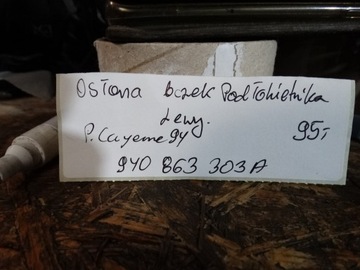 Osłona boczek Podłokietnika
Lewy.
P. Cayenne 9Y 95,-
9Y0 863 303 A